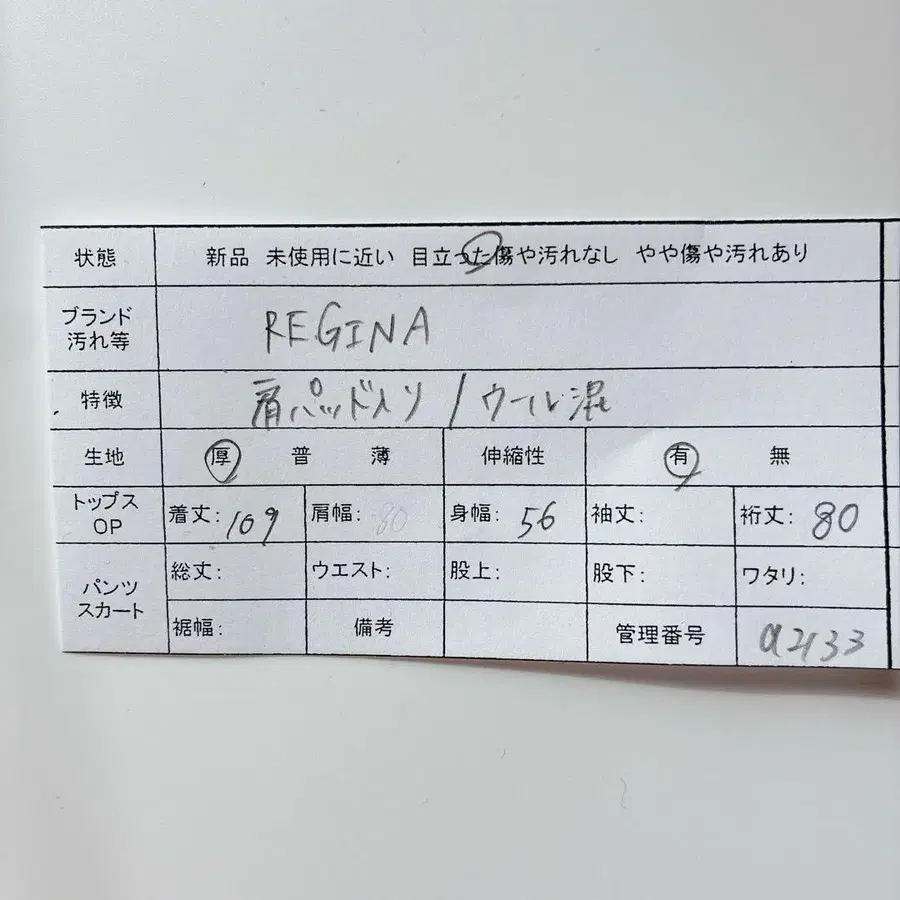 状態 新品 未使用に近い 目立った傷や汚れなし やや傷や汚れあり
ブランド
汚れ等
REGINA
特徴 肩パッド入り / ウール混
生地 厚 普 薄 伸縮性 有 無
トップス
OP
着丈: 109 肩幅: 80 身幅: 56 袖丈: 裄丈: 80
パンツ
スカート
総丈: ウエスト: 股上: 股下: ワタリ:
裾幅: 備考 管理番号 a2133